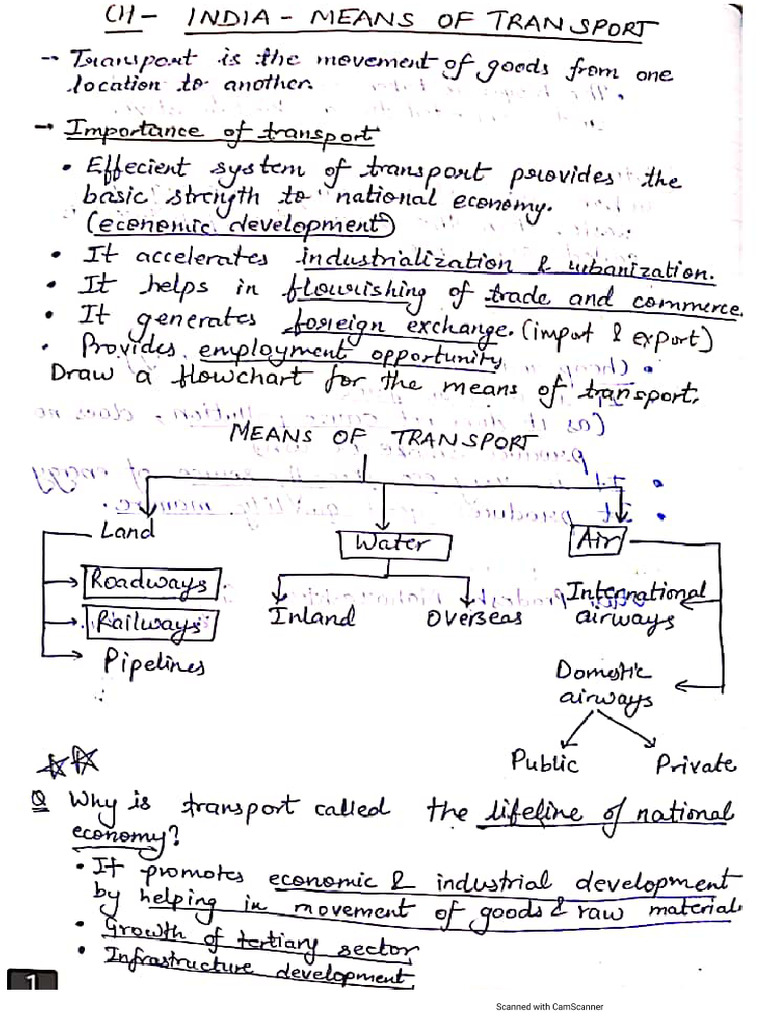 CH- INDIA - MEANS OF TRANSPORT
→ Transport is the movement of goods from one
location to another.
→ Importance of transport
• Effecient system of transport provides the
basic strength to national economy.
(economic development)
• It accelerates industrialization & urbanization.
• It helps in flourishing of trade and commerce.
• It generates foreign exchange. (import & export)
• Provides employment opportunity
Draw a flowchart for the means of transport.
MEANS OF TRANSPORT
Land Water Air
Roadways
Railways
Pipelines
Inland Overseas
International
airways
Domestic
airways
Public Private
Q Why is transport called the lifeline of national
economy?
• It promotes economic & industrial development
by helping in movement of goods & raw material.
• Growth of tertiary sector
• Infrastructure development
1
Scanned with CamScanner